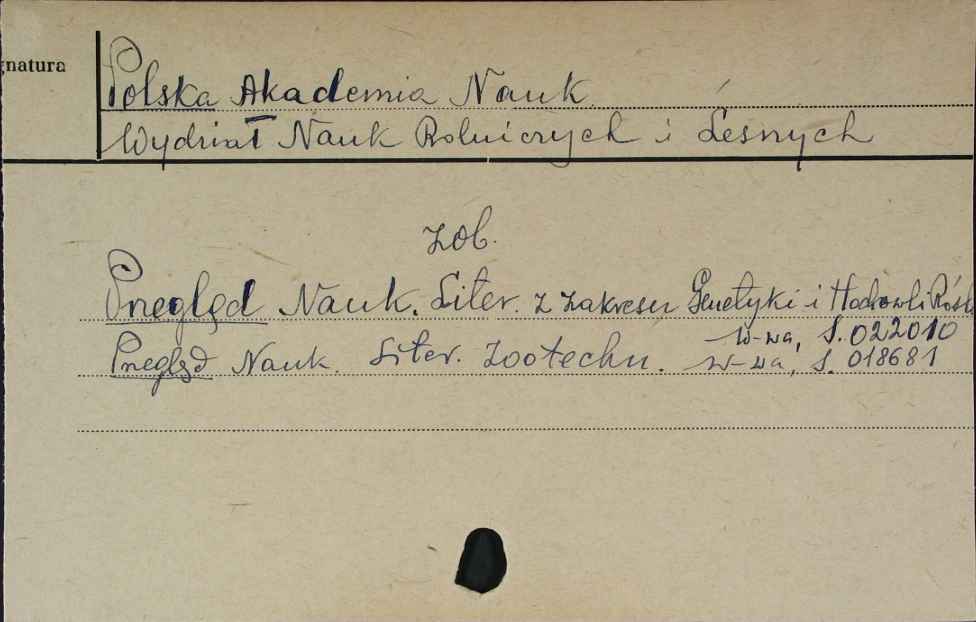 gnatura
Polska Akademia Nauk
Wydział Nauk Rolniczych i Leśnych
zob.
Przegląd Nauk. Liter. z zakresu Genetyki i Hodowli Rośl
W-wa, S. 022010
Przegląd Nauk. Liter. Zootechn. W-wa, S. 018681